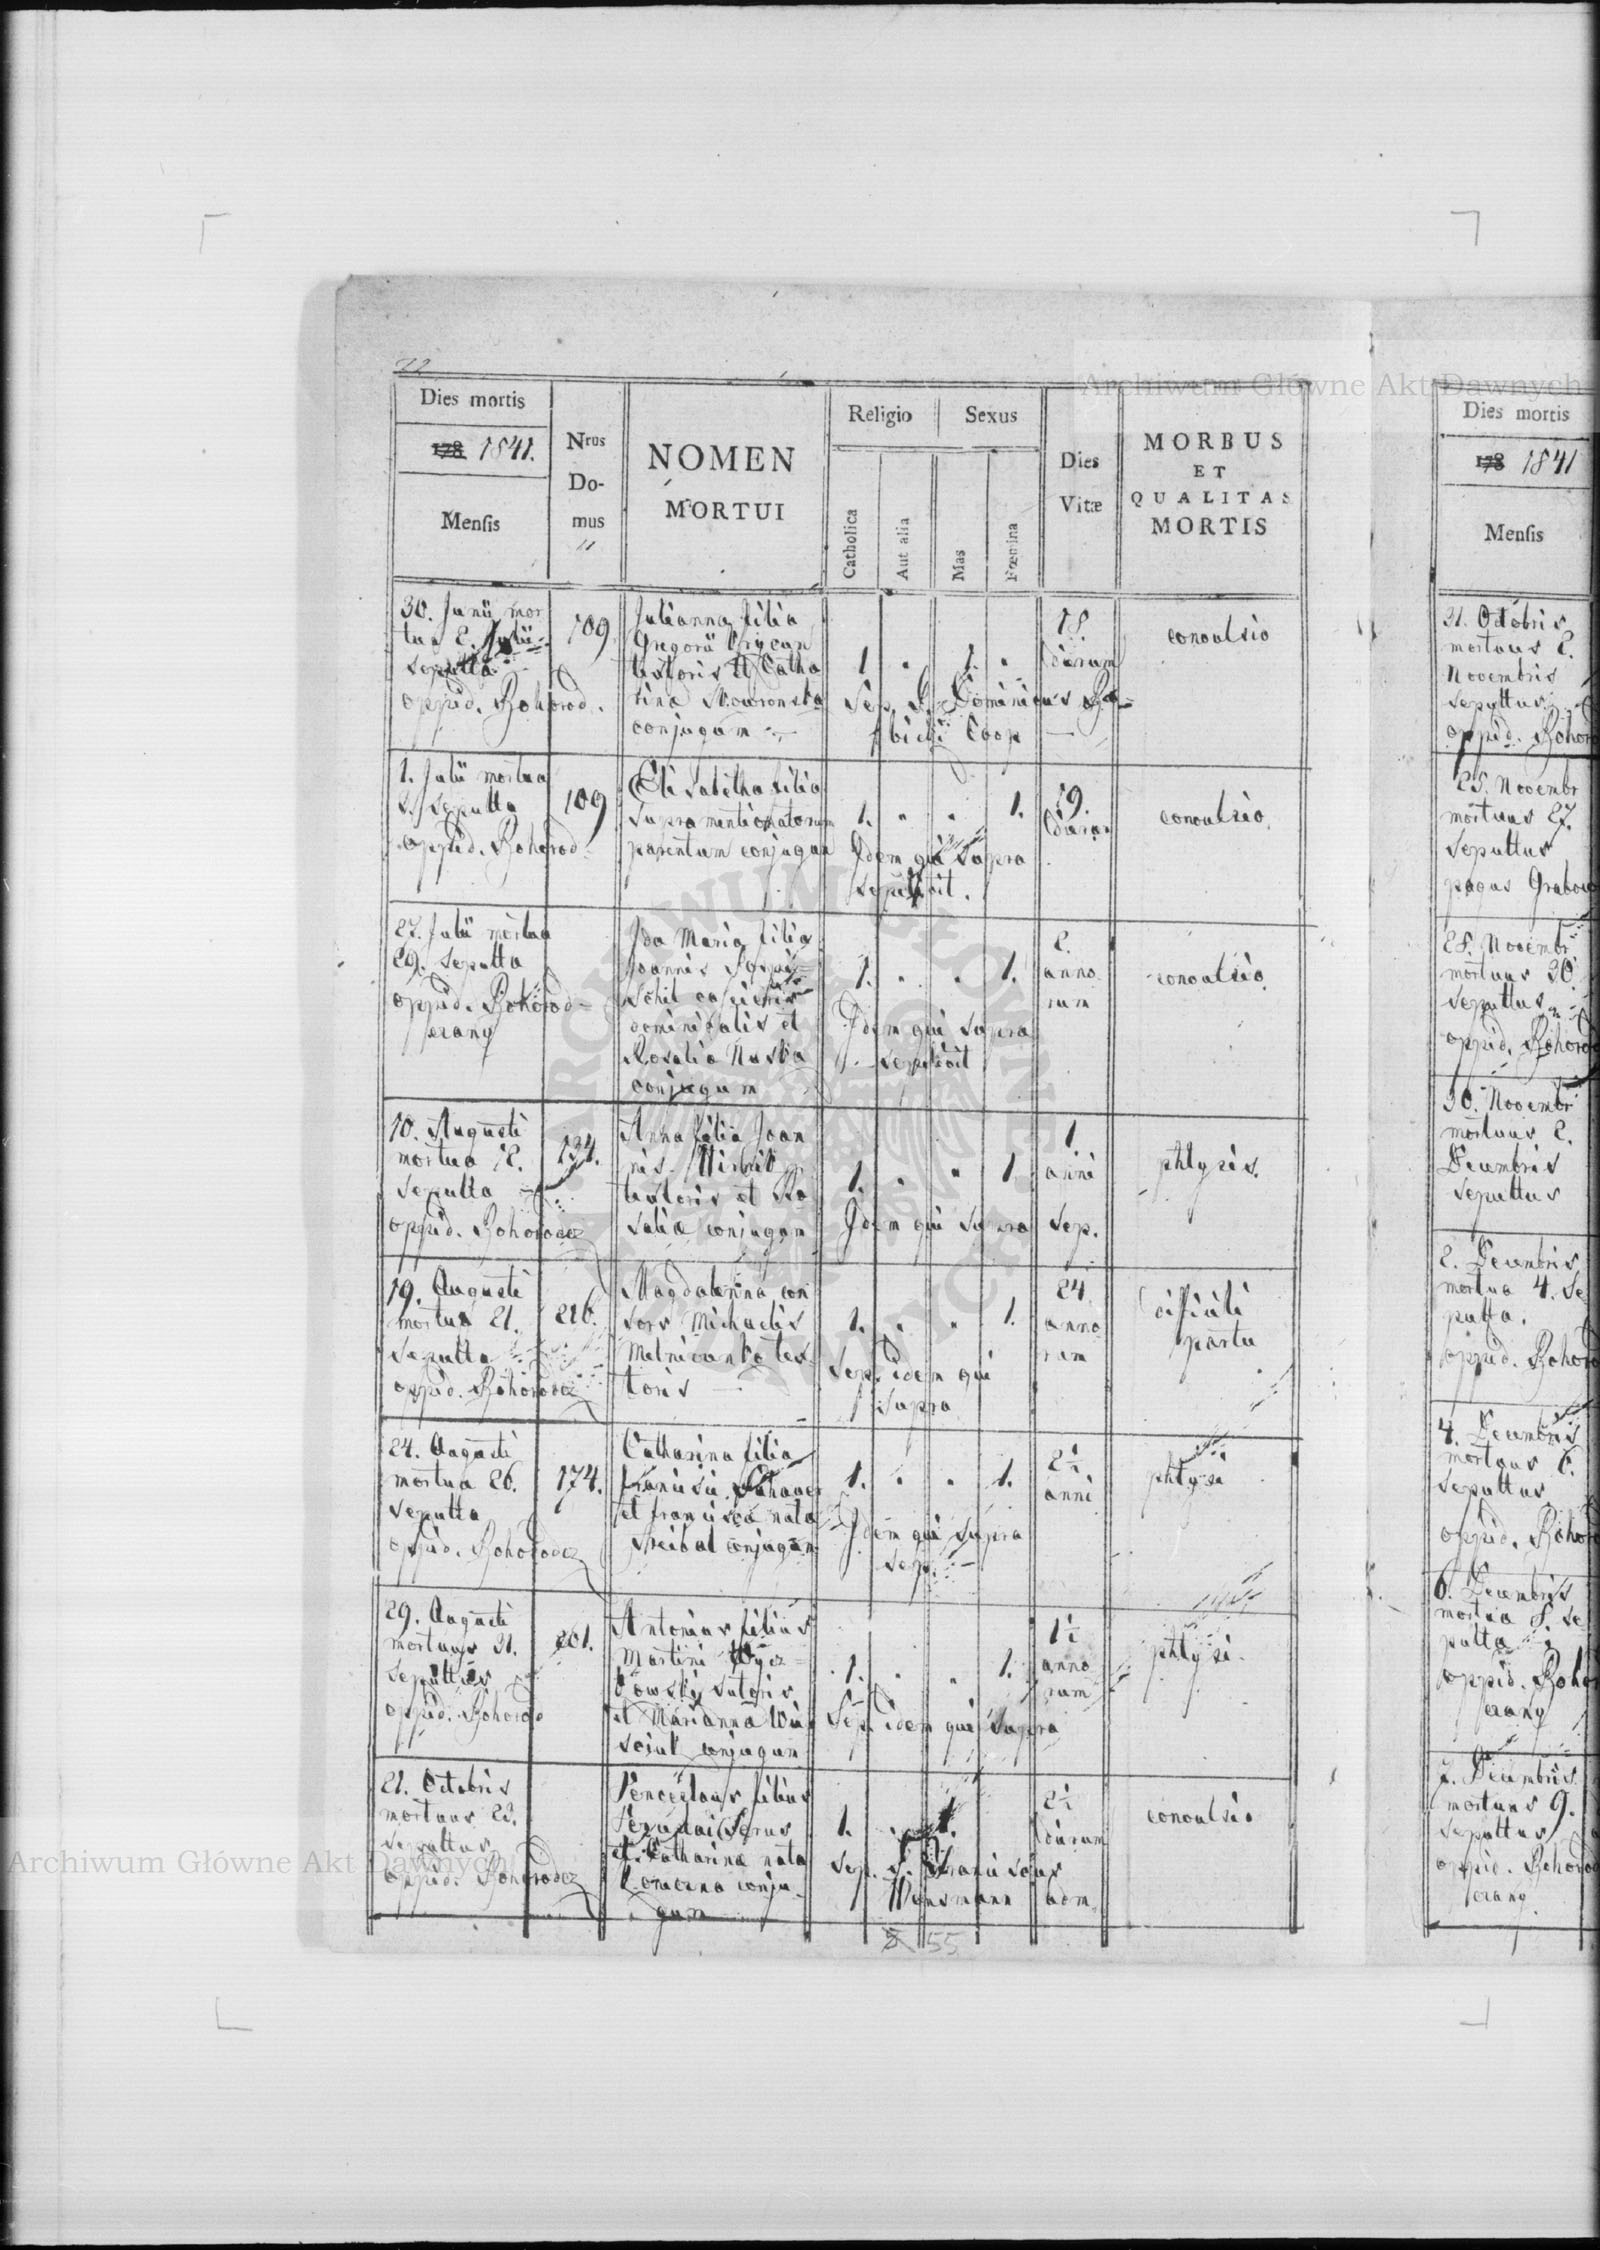 72
Archiwum Główne Akt Dawnych
Dies mortis
178 1841.
Mensis
Nrus
Do-
mus
NOMEN
MORTUI
Religio
Sexus
Catholica
Aut alia
Mas
Fœmina
Dies
Vitæ
MORBUS
ET
QUALITAS
MORTIS
30. Junii mor
tua 2. Julii
sepulta
oppid. Bohorod.
109.
Julianna filia
Gregorii
textoris et Catha
rina Skowronska
conjugum
1 " 1. "
Sep. P. Dominicus Ba=
bicki Coop
18.
dierum
convulsio
1. Julii mortua
sepulta
oppid. Bohorod=
109
Elisabetha filia
supra mentionatorum
parentum conjugum
1. " " 1.
Idem qui supra
sepelivit.
19.
dierum
convulsio.
27. Julii mortua
29. sepulta
oppid. Bohorod=
czany
Ida Maria filia
Joannis
dominicalis et
Rosalia
conjugum
1. " " 1.
Idem qui supra
sepelivit
2.
anno
rum
convulsio.
10. Augusti
mortua 12.
sepulta
oppid. Bohorodcz
134.
Anna filia Joan
nis
textoris et Ro
salia conjugum
1. " " 1.
Idem qui supra sep.
1.
anni
phtysis.
19. Augusti
mortua 21.
sepulta
oppid. Bohorodcz
216.
Magdalenna con
sors Michaelis
tex
toris
1. " " 1.
Sep. idem qui
supra
24
anno
rum
dificili
partu
24. Augusti
mortua 26.
sepulta
oppid. Bohorodcz
174.
Catharina filia
Francisci
et Francisca nata
conjugum
1. " " 1.
Idem qui supra
sep.
2½
anni
phtysi
29. Augusti
mortuus 31.
sepultus
oppid. Bohorod
201.
Antonius filius
Martini Wycz=
kowski sutoris
et Marianna
conjugum
1. " " 1.
Sep. idem qui supra
1½
anno
rum
phtysi.
21. Octobris
mortuus 23.
sepultus
oppid. Bohorodcz
Venceslaus filius
et Catharina nata
conju
gum
1. " 1.
Sep. P. Franciscus
adm.
2½
dierum
convulsio
55
Dies mortis
178 1841
Mensis
31. Octobris
mortuus 2.
Novembris
sepultus
oppid. Bohoro
25. Novembr
mortuus 27.
sepultus
pagus Grabow
28. Novembr
mortuus 30.
sepultus
oppid. Bohorod
30. Novembr
mortuus 2.
Decembris
sepultus
2. Decembris
mortua 4. Se
pulta.
oppid. Bohoro
4. Decembris
mortuus 6.
sepultus
oppid. Bohoro
6. Decembris
mortua 8. se
pulta
oppid. Bohor
czany
7. Decembris
mortuus 9.
sepultus
oppid. Bohorod
czany
Archiwum Główne Akt Dawnych